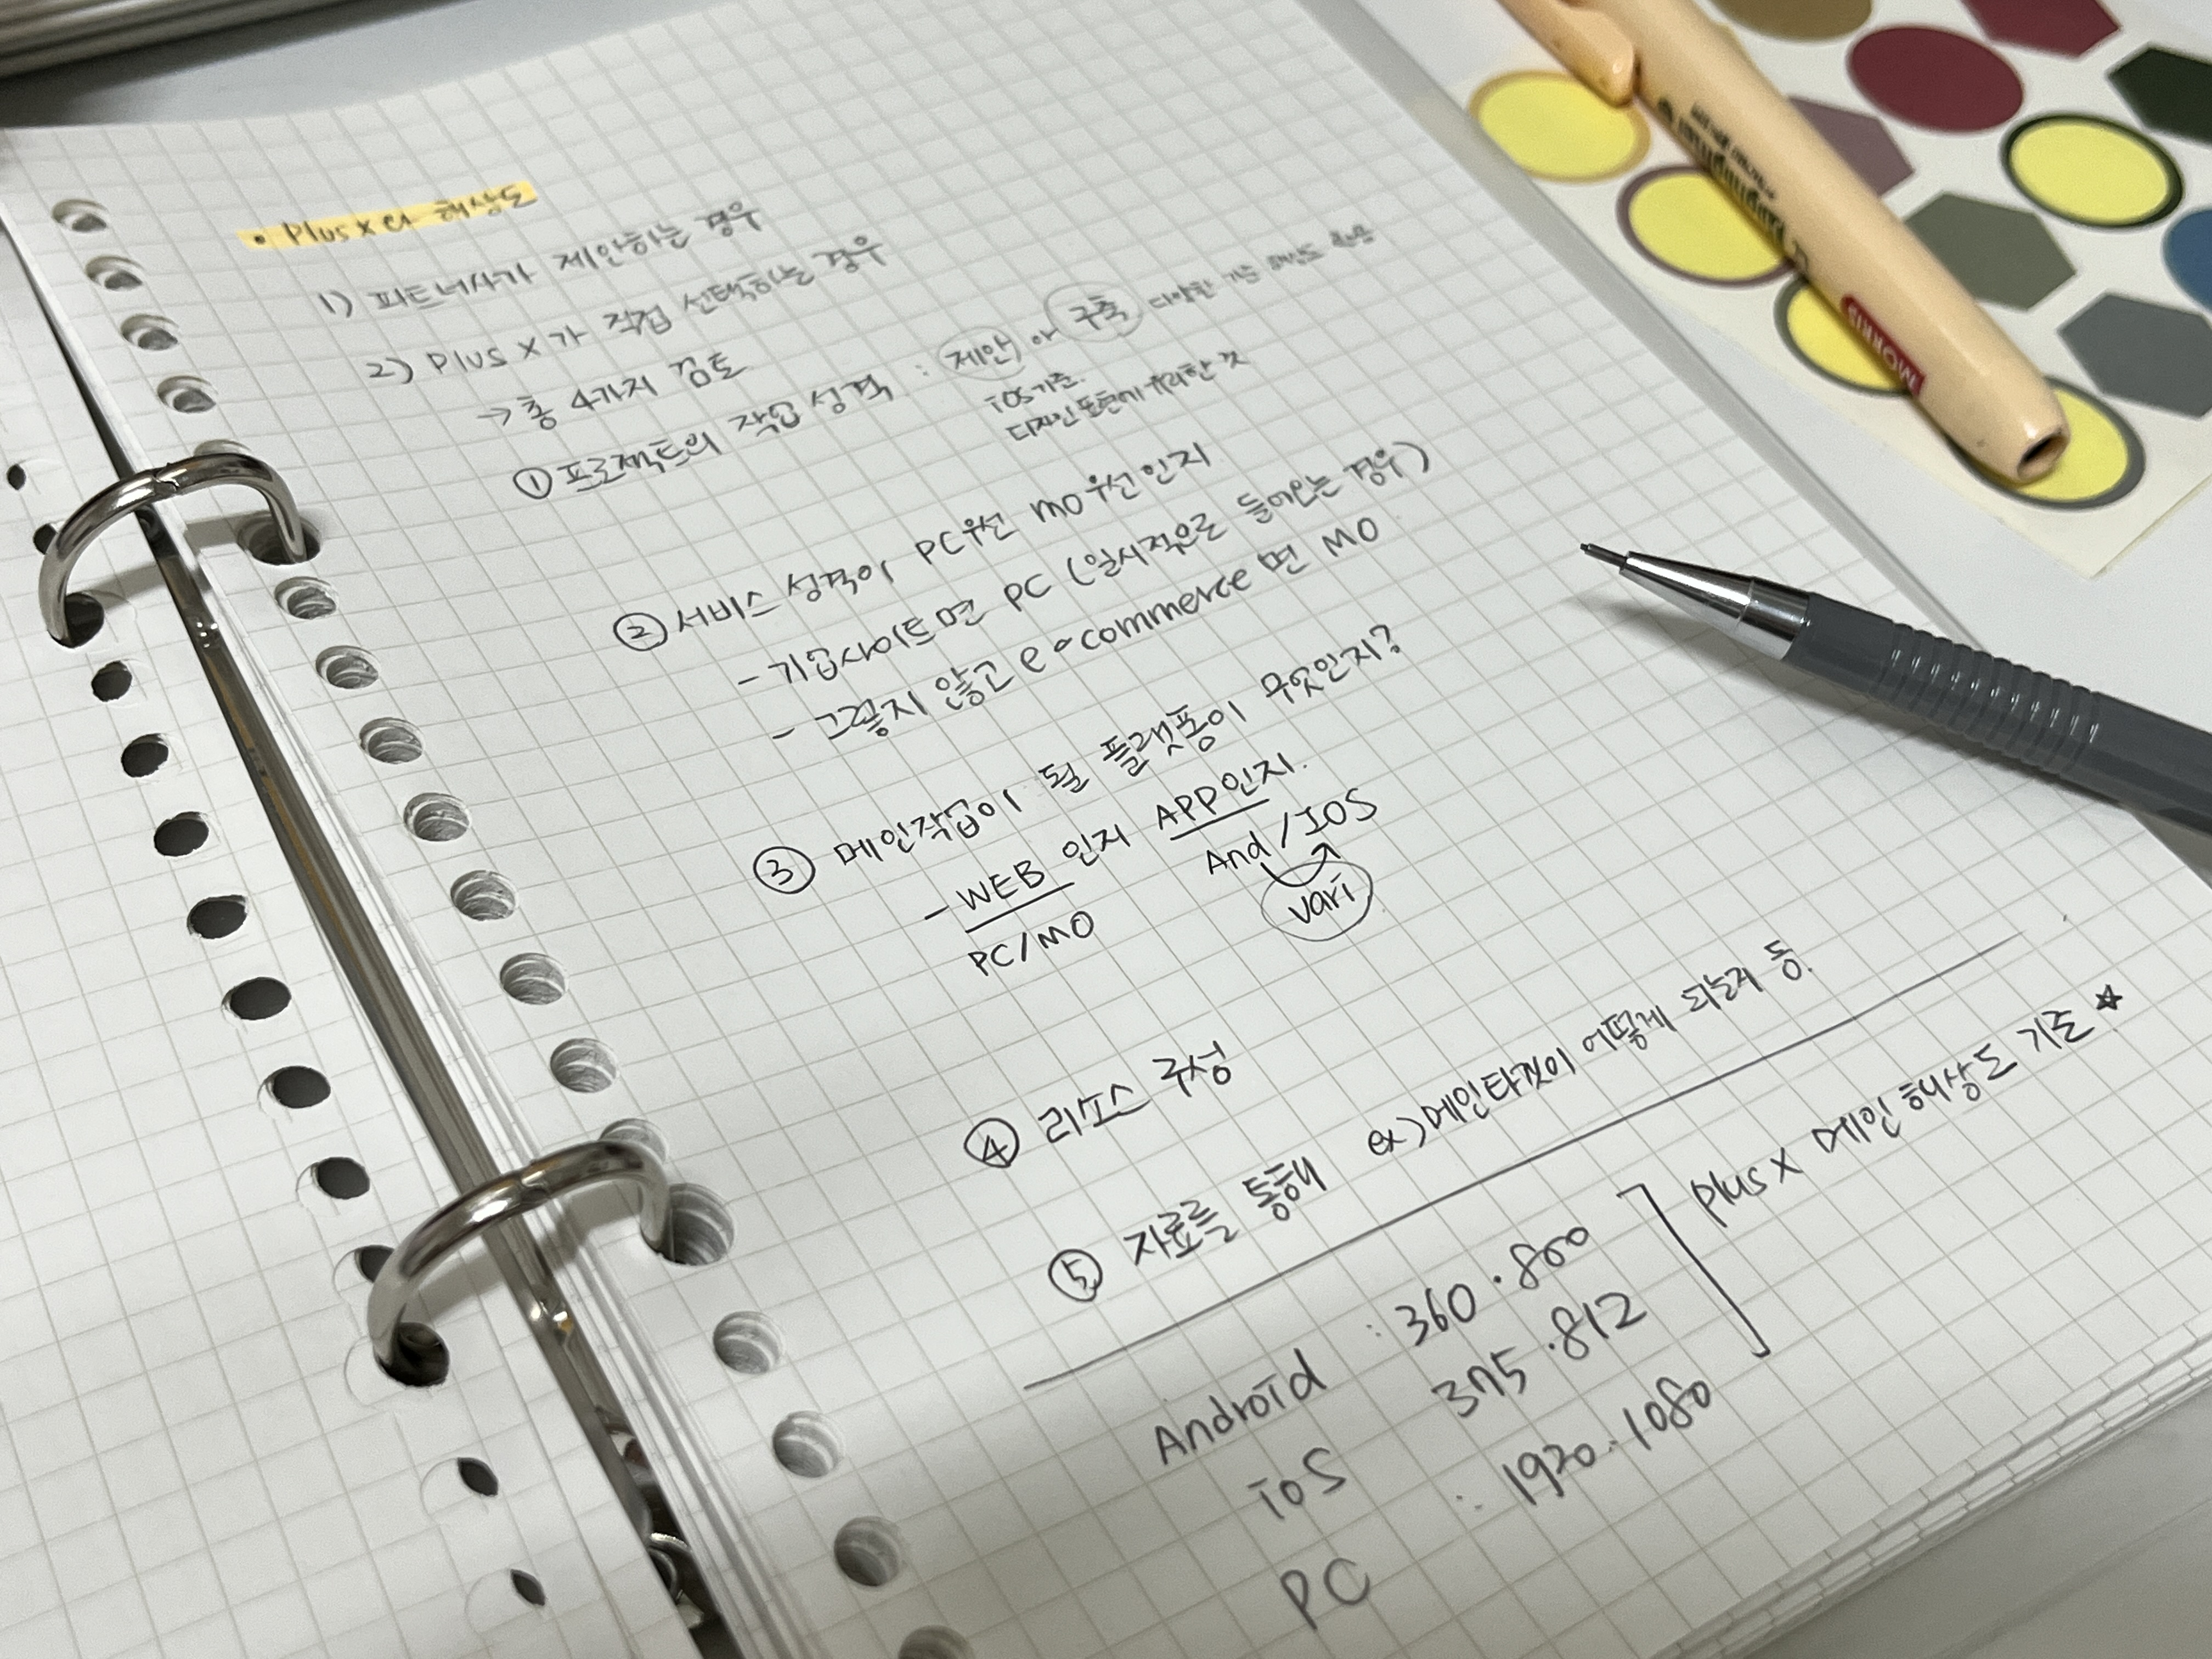 • Plus X의 해상도
1) 파트너사가 제안하는 경우
2) Plus X가 직접 선택하는 경우
→ 총 4가지 검토
① 프로젝트의 작업 성격 : 제안 or 구축 다양한 기준 해상도
iOS기준.
디자인 표현에 유리한 것
② 서비스 성격이 PC우선 MO우선인지
- 기업사이트면 PC (일시적으로 들어오는 경우)
- 그렇지 않고 e-commerce면 MO
③ 메인작업이 될 플랫폼이 무엇인지?
- WEB 인지 APP인지.
PC/MO And/IOS
vari
④ 리소스 구성
⑤ 자료를 통해 ex) 메인타겟이 어떻게 되는지 등.
Android : 360.800
iOS 375.812
PC : 1920.1080
Plus X 메인 해상도 기준 ☆
MORRIS